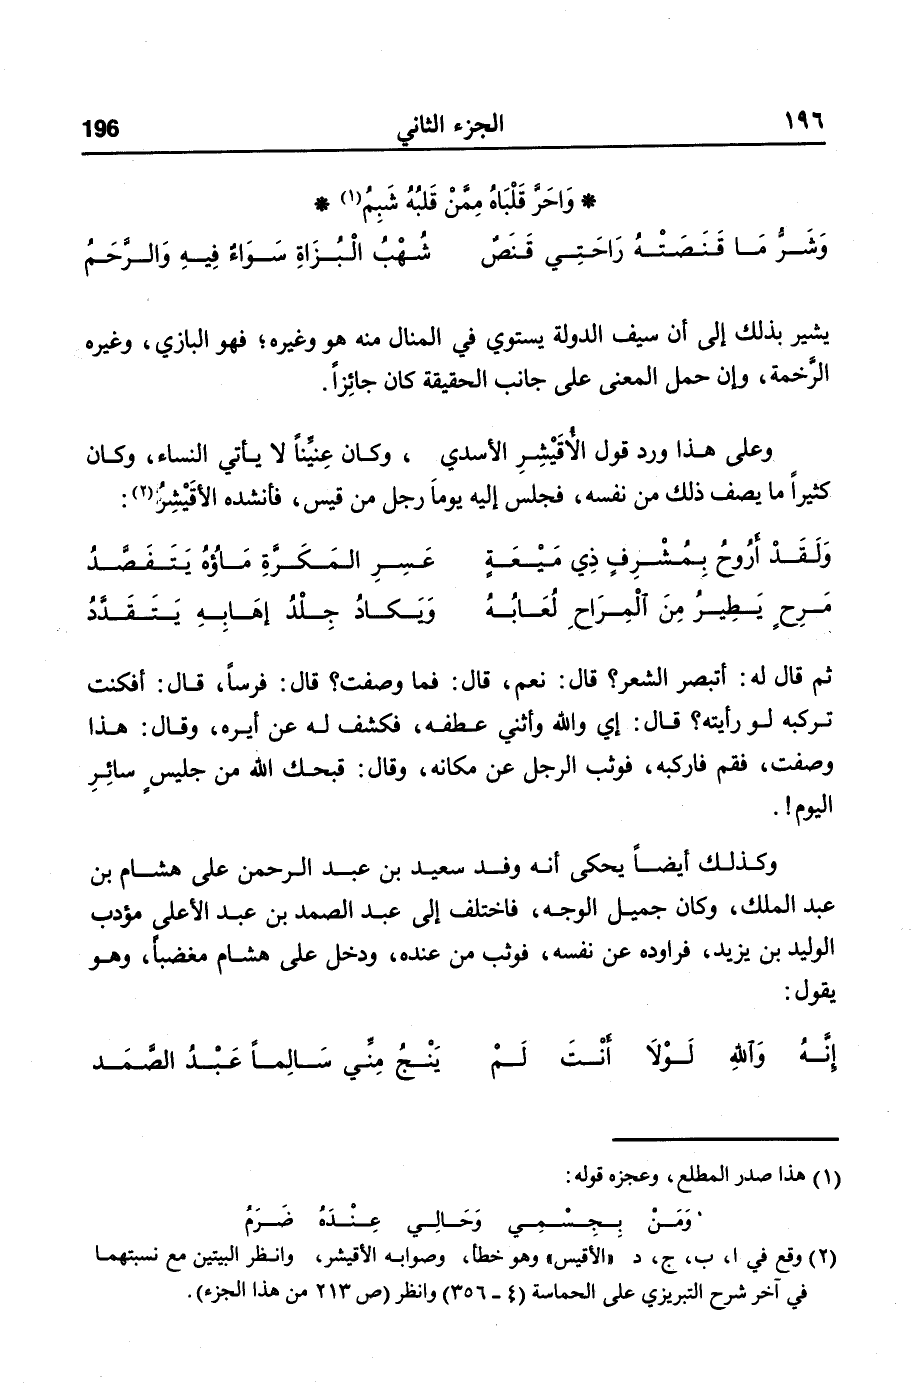 ١٩٦ الجزء الثاني 196
* وَاحَرَّ قَلْبَاهُ مِمَّنْ قَلْبُهُ شَبِمُ(١) *
وَشَرُّ مَا قَنَصَتْهُ رَاحَتِي قَنَصٌ شُهْبُ الْبُزَاةِ سَوَاءٌ فِيهِ وَالرَّخَمُ
يشير بذلك إلى أن سيف الدولة يستوي في المنال منه هو وغيره؛ فهو البازي، وغيره
الرَّخمة، وإن حمل المعنى على جانب الحقيقة كان جائزاً.
وعلى هذا ورد قول الأُقَيْشِرِ الأسدي ، وكان عِنِّيناً لا يأتي النساء، وكان
كثيراً ما يصف ذلك من نفسه، فجلس إليه يوماً رجل من قيس، فأنشده الأقَيْشِرُ(٢):
وَلَقَدْ أَرُوحُ بِمُشْرِفٍ ذِي مَيْعَةٍ عَسِرِ المَكَرَّةِ مَاؤُهُ يَتَفَصَّدُ
مَرِحٍ يَطِيرُ مِنَ ٱلْمِرَاحِ لُعَابُهُ وَيَكَادُ جِلْدُ إهَابِهِ يَتَقَدَّدُ
ثم قال له: أتبصر الشعر؟ قال: نعم، قال: فما وصفت؟ قال: فرساً، قال: أفكنت
تركبه لو رأيته؟ قال: إي والله وأثني عطفه، فكشف له عن أيره، وقال: هذا
وصفت، فقم فاركبه، فوثب الرجل عن مكانه، وقال: قبحك الله من جليسٍ سائِرِ
اليوم!.
وكذلك أيضاً يحكى أنه وفد سعيد بن عبد الرحمن على هشام بن
عبد الملك، وكان جميل الوجه، فاختلف إلى عبد الصمد بن عبد الأعلى مؤدب
الوليد بن يزيد، فراوده عن نفسه، فوثب من عنده، ودخل على هشام مغضباً، وهو
يقول:
إِنَّهُ وَٱللهِ لَوْلاَ أَنْتَ لَمْ يَنْجُ مِنِّي سَالِماً عَبْدُ الصَّمَد
(١) هذا صدر المطلع، وعجزه قوله:
وَمَنْ بِجِسْمِي وَحَالِي عِنْدَهُ ضَرَمُ
(٢) وقع في ا، ب، ج، د «الأقيس» وهو خطأ، وصوابه الأقيشر، وانظر البيتين مع نسبتهما
في آخر شرح التبريزي على الحماسة (٤ ـ ٣٥٦) وانظر (ص ٢١٣ من هذا الجزء).